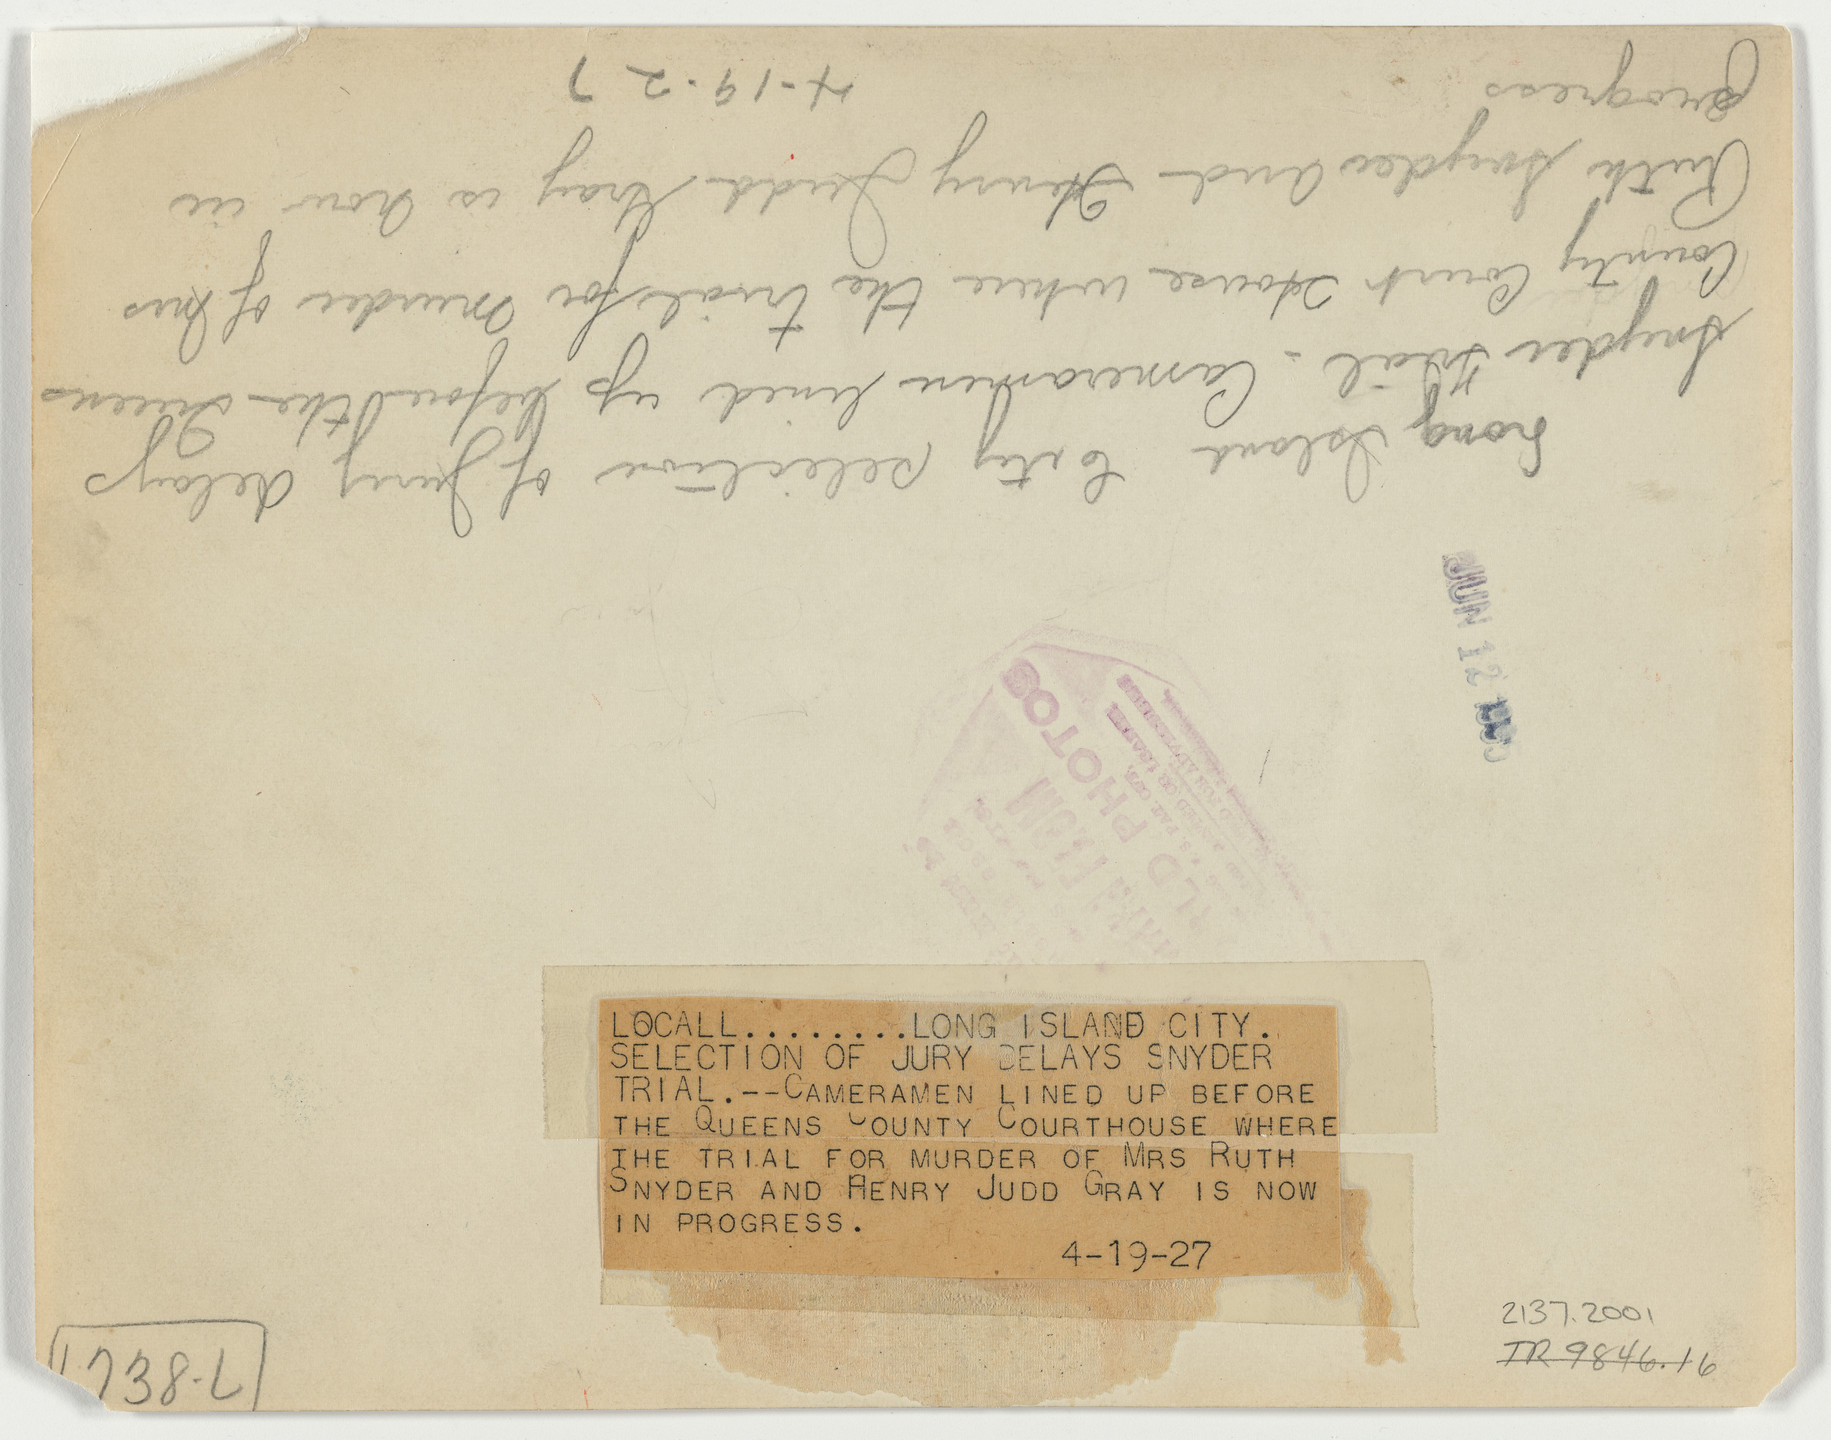 Long Island City selection of Jury delays
Snyder trial - Cameramen lined up before the Queens
County Court House where the trial for murder of Mrs
Ruth Snyder and Henry Judd Gray is now in
progress
4-19-27
JUN 12
PHOTOS
LOCALL........LONG ISLAND CITY.
SELECTION OF JURY DELAYS SNYDER
TRIAL.--CAMERAMEN LINED UP BEFORE
THE QUEENS COUNTY COURTHOUSE WHERE
THE TRIAL FOR MURDER OF MRS RUTH
SNYDER AND HENRY JUDD GRAY IS NOW
IN PROGRESS.
4-19-27
2137.2001
TR 9846.16